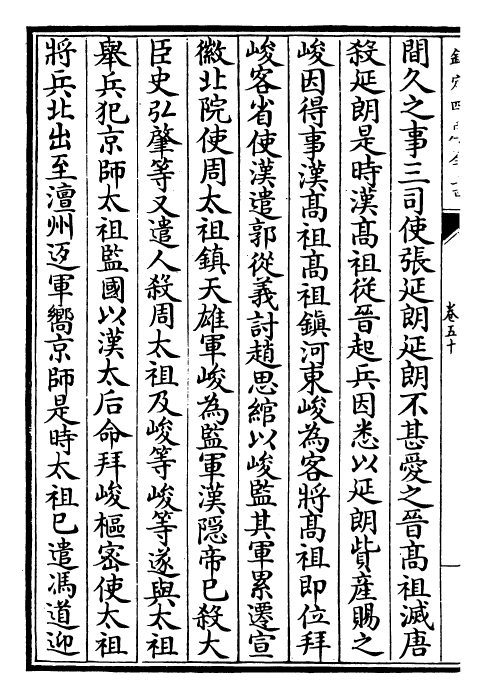 欽定四庫全書
卷五十
間久之事三司使張延朗延朗不甚愛之晉髙祖滅唐
殺延朗是時漢髙祖從晉起兵因悉以延朗貲產賜之
峻因得事漢髙祖髙祖鎭河東峻為客將髙祖即位拜
峻客省使漢遣郭從義討趙思綰以峻監其軍累遷宣
徽北院使周太祖鎮天雄軍峻為監軍漢隠帝已殺大
臣史弘肇等又遣人殺周太祖及峻等峻等遂與太祖
舉兵犯京師太祖監國以漢太后命拜峻樞宻使太祖
將兵北出至澶州返軍嚮京師是時太祖已遣馮道迎